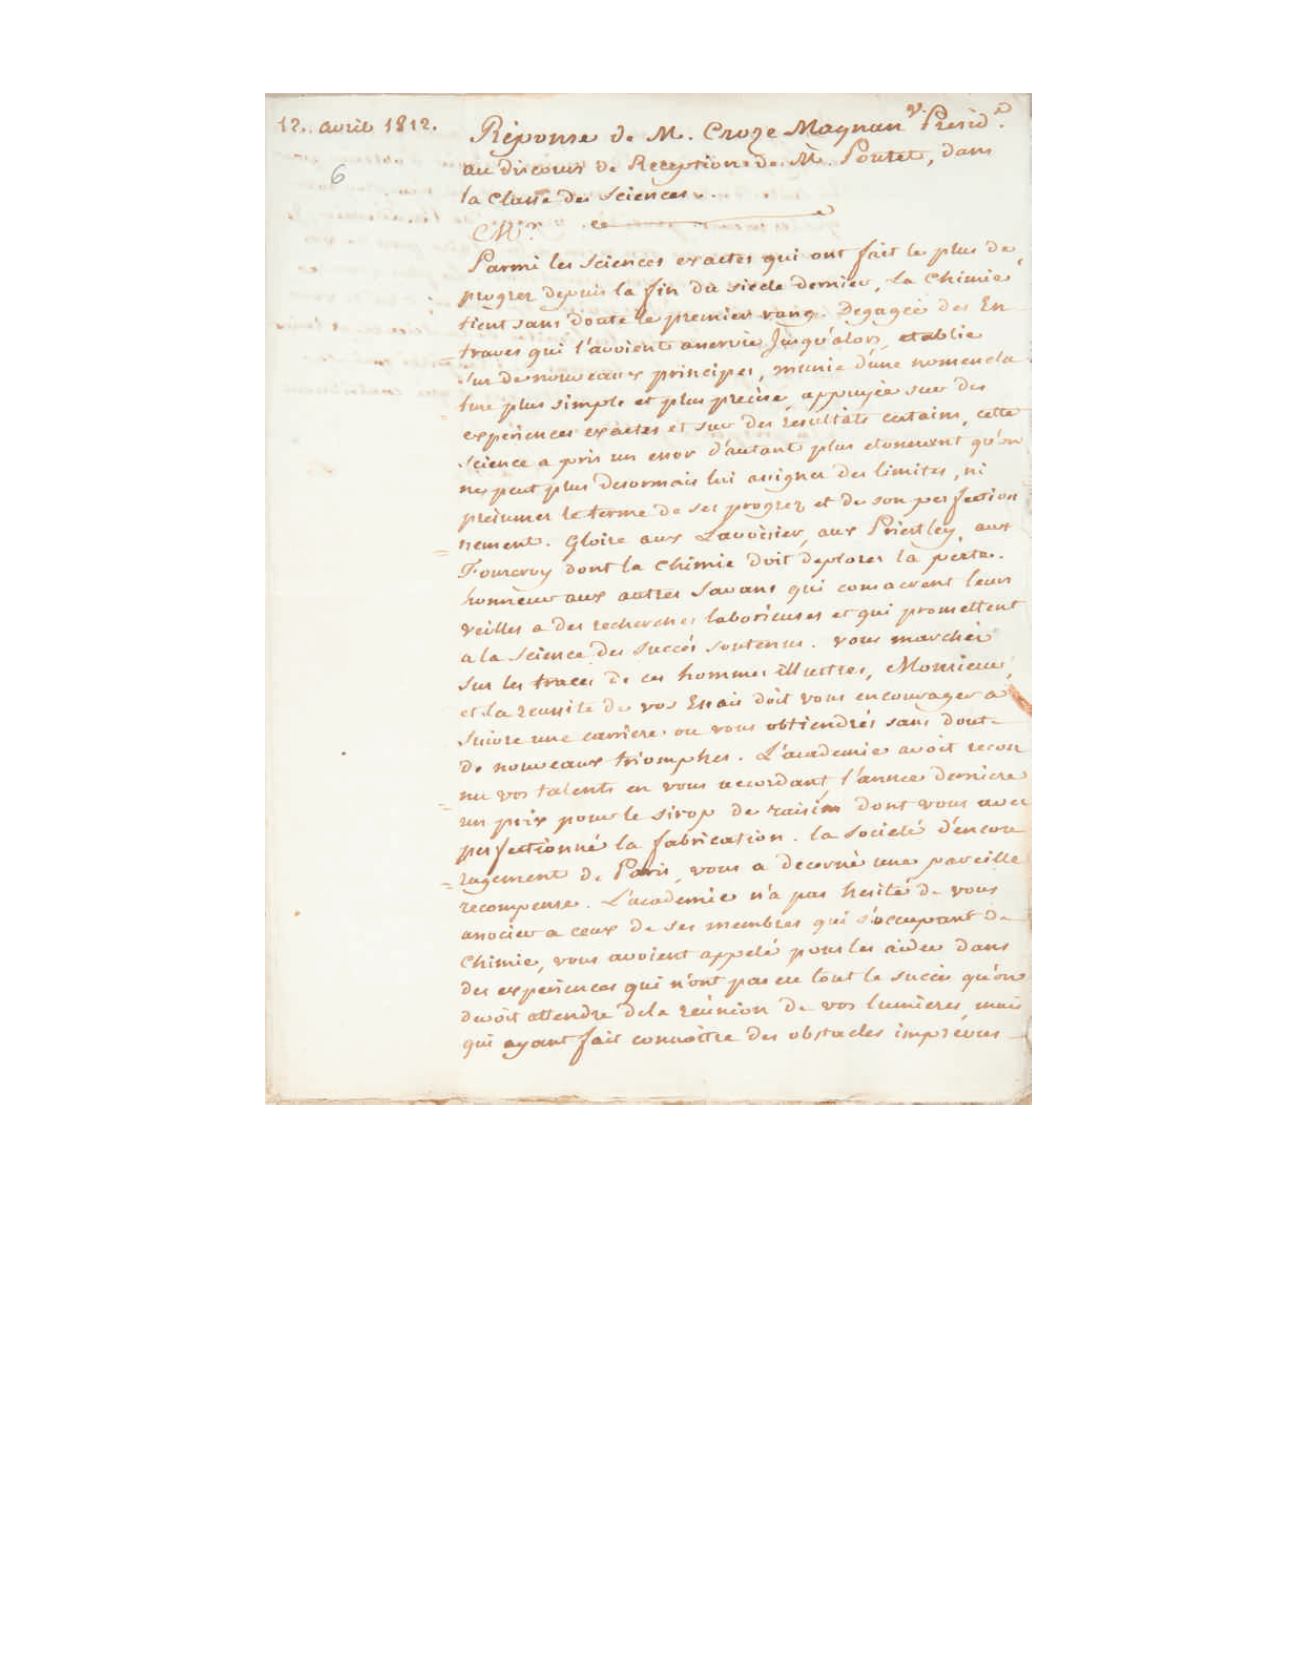 12. avril 1812.
6
Réponse de M. Croze Magnan V. Présid.
au discours de Reception de M. Poutet, dans
la Classe des Sciences.
Mr.
Parmi les Sciences exactes qui ont fait le plus de
progrez depuis la fin du siecle dernier, la Chimie
tient sans doute le premier rang. Degagée des En
= traves qui l'avoient enervée Jusqu'alors, etablie
sur de nouveaux principes, munie d'une nomencla
= ture plus simple et plus precise, appuyée sur des
experiences exactes et sur des résultats certains, cette
science a pris un essor d'autant plus etonnant qu'on
ne peut plus desormais lui assigner des limites, ni
présumer le terme de ses progrez et de son perfection
= nement. Gloire aux Lavoisier, aux Priestley, aux
Fourcroy dont la Chimie doit deplorer la perte.
honneur aux autres Savans qui consacrent leurs
veilles a des recherches laborieuses et qui promettent
a la science des succès soutenus. vous marchéz
sur les traces de ces hommes illustres, Monsieur,
et la reussite de vos Essais doit vous encourager a
suivre une carriere ou vous obtiendrés sans doute
de nouveaux triomphes. L'academie avoit recon
= nu vos talents en vous accordant l'année derniere
un prix pour le sirop de raisin dont vous avez
perfectionné la fabrication. la Societé d'encou
= ragement de Paris, vous a decerné une pareille
recompense. L'academie n'a pas hesité de vous
associer a ceux de ses membres qui s'occupant de
Chimie, vous avoient appelé pour les aider dans
des experiences qui n'ont pas eu tout le succès qu'on
devoit attendre de la réunion de vos lumieres, mais
qui ayant fait connoître des obstacles imprévus